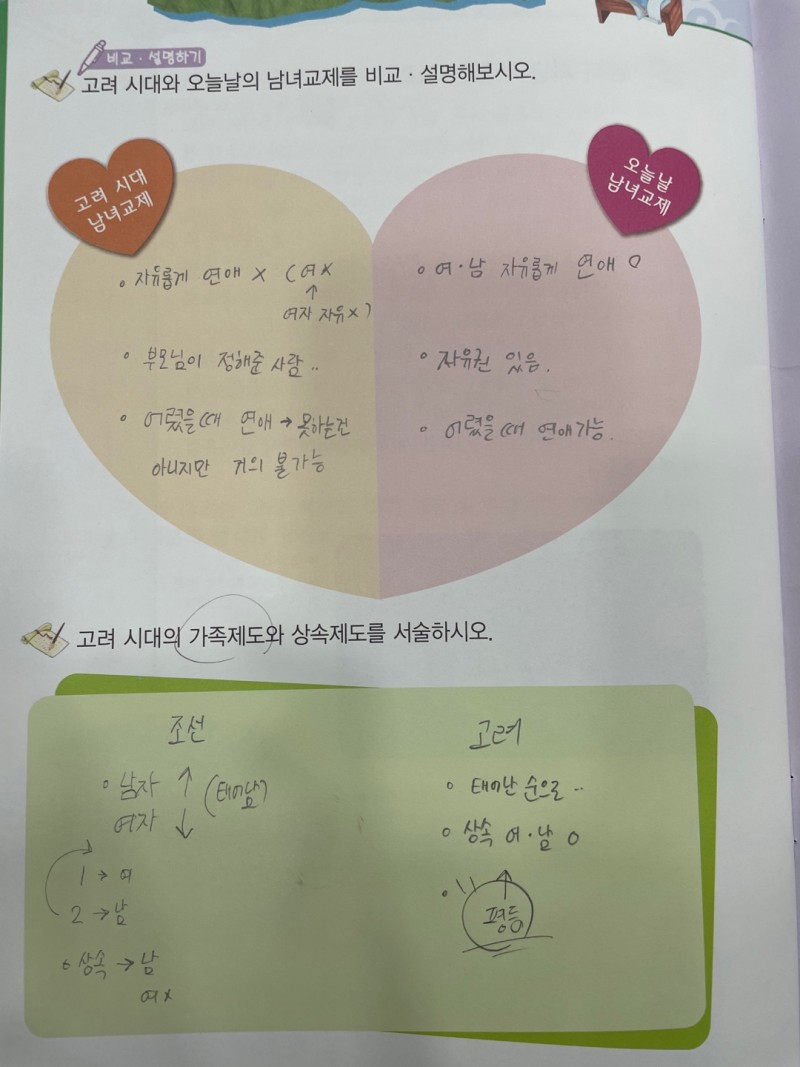 비교·설명하기
고려 시대와 오늘날의 남녀교제를 비교·설명해보시오.
고려 시대
남녀교제
오늘날
남녀교제
◦ 자유롭게 연애 X (여X
↑
여자 자유X)
◦ 부모님이 정해준 사람..
◦ 어렸을때 연애 → 못하는건
아니지만 거의 불가능
◦ 여·남 자유롭게 연애 O
◦ 자유권 있음.
◦ 어렸을때 연애가능.
고려 시대의 가족제도와 상속제도를 서술하시오.
조선
◦ 남자 ↑ (태어남)
여자 ↓
1 → 여
2 → 남
◦ 상속 → 남
여X
고려
◦ 태어난 순으로..
◦ 상속 여·남 O
◦ 평등